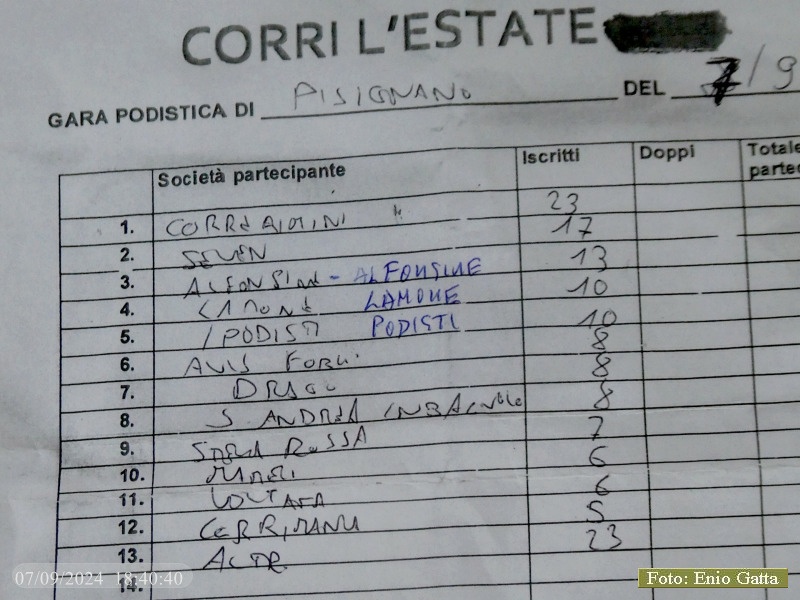 CORRI L'ESTATE
GARA PODISTICA DI PISIGNANO DEL 7/9
Società partecipante Iscritti Doppi Totale
23
1. 17
2. SEVEN 13
3. ALFONSINE - ALFONSINE 10
4. LAMONE LAMONE 10
5. IPODISTI PODISTI 8
6. AVIS FORLI' 8
7. DRAGO 8
8. S. ANDREA 7
9. STELLA ROSSA 6
10. 6
11. VOLTANA 5
12. 23
13.
14.
07/09/2024 18:40:40
Foto: Enio Gatta